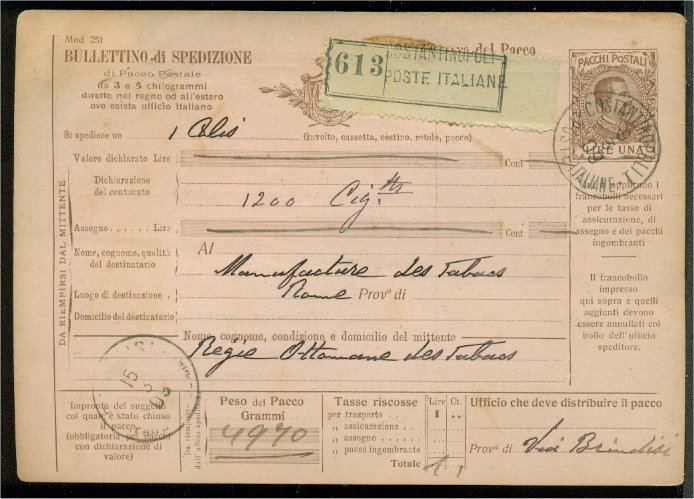 Mod. 251
BULLETTINO di SPEDIZIONE
di Pacco Postale
da 3 a 5 chilogrammi
diretto nel regno od all'estero
ove esista ufficio Italiano
613
COSTANTINOPOLI
POSTE ITALIANE
del Pacco
PACCHI POSTALI
LIRE UNA
COSTANTINOPOLI
ITALIANE
Si spedisce un 1 Colis (involto, cassetta, cestino, rotolo, pacco)
Valore dichiarato Lire Cent
Dichiarazione del contenuto
1200 Cig.
Assegno Lire Cent
applicano i
francobolli necessari
per le tasse di
assicurazione, di
assegno e dei pacchi
ingombranti
DA RIEMPIRSI DAL MITTENTE
Nome, cognome, qualità
del destinatario
Al
Manufacture des Tabacs
Luogo di destinazione
Rome Prov.a di
Domicilio del destinatario
Il francobollo
impresso
qui sopra e quelli
aggiunti devono
essere annullati col
bollo dell'ufficio
speditore.
Nome, cognome, condizione e domicilio del mittente
Régie Ottomane des Tabacs
Impronta del suggello
col quale è stato chiuso
il pacco
(obbligatoria pei pacchi
con dichiarazione di
valore)
Da riempirsi
dall'ufficio speditore
Peso del Pacco
Grammi
4970
Tasse riscosse Lire Ct.
per trasporto 1 ,,
,, assicurazione
,, assegno
,, pacco ingombrante
Totale 1
Ufficio che deve distribuire il pacco
Prov.a di Via Brindisi